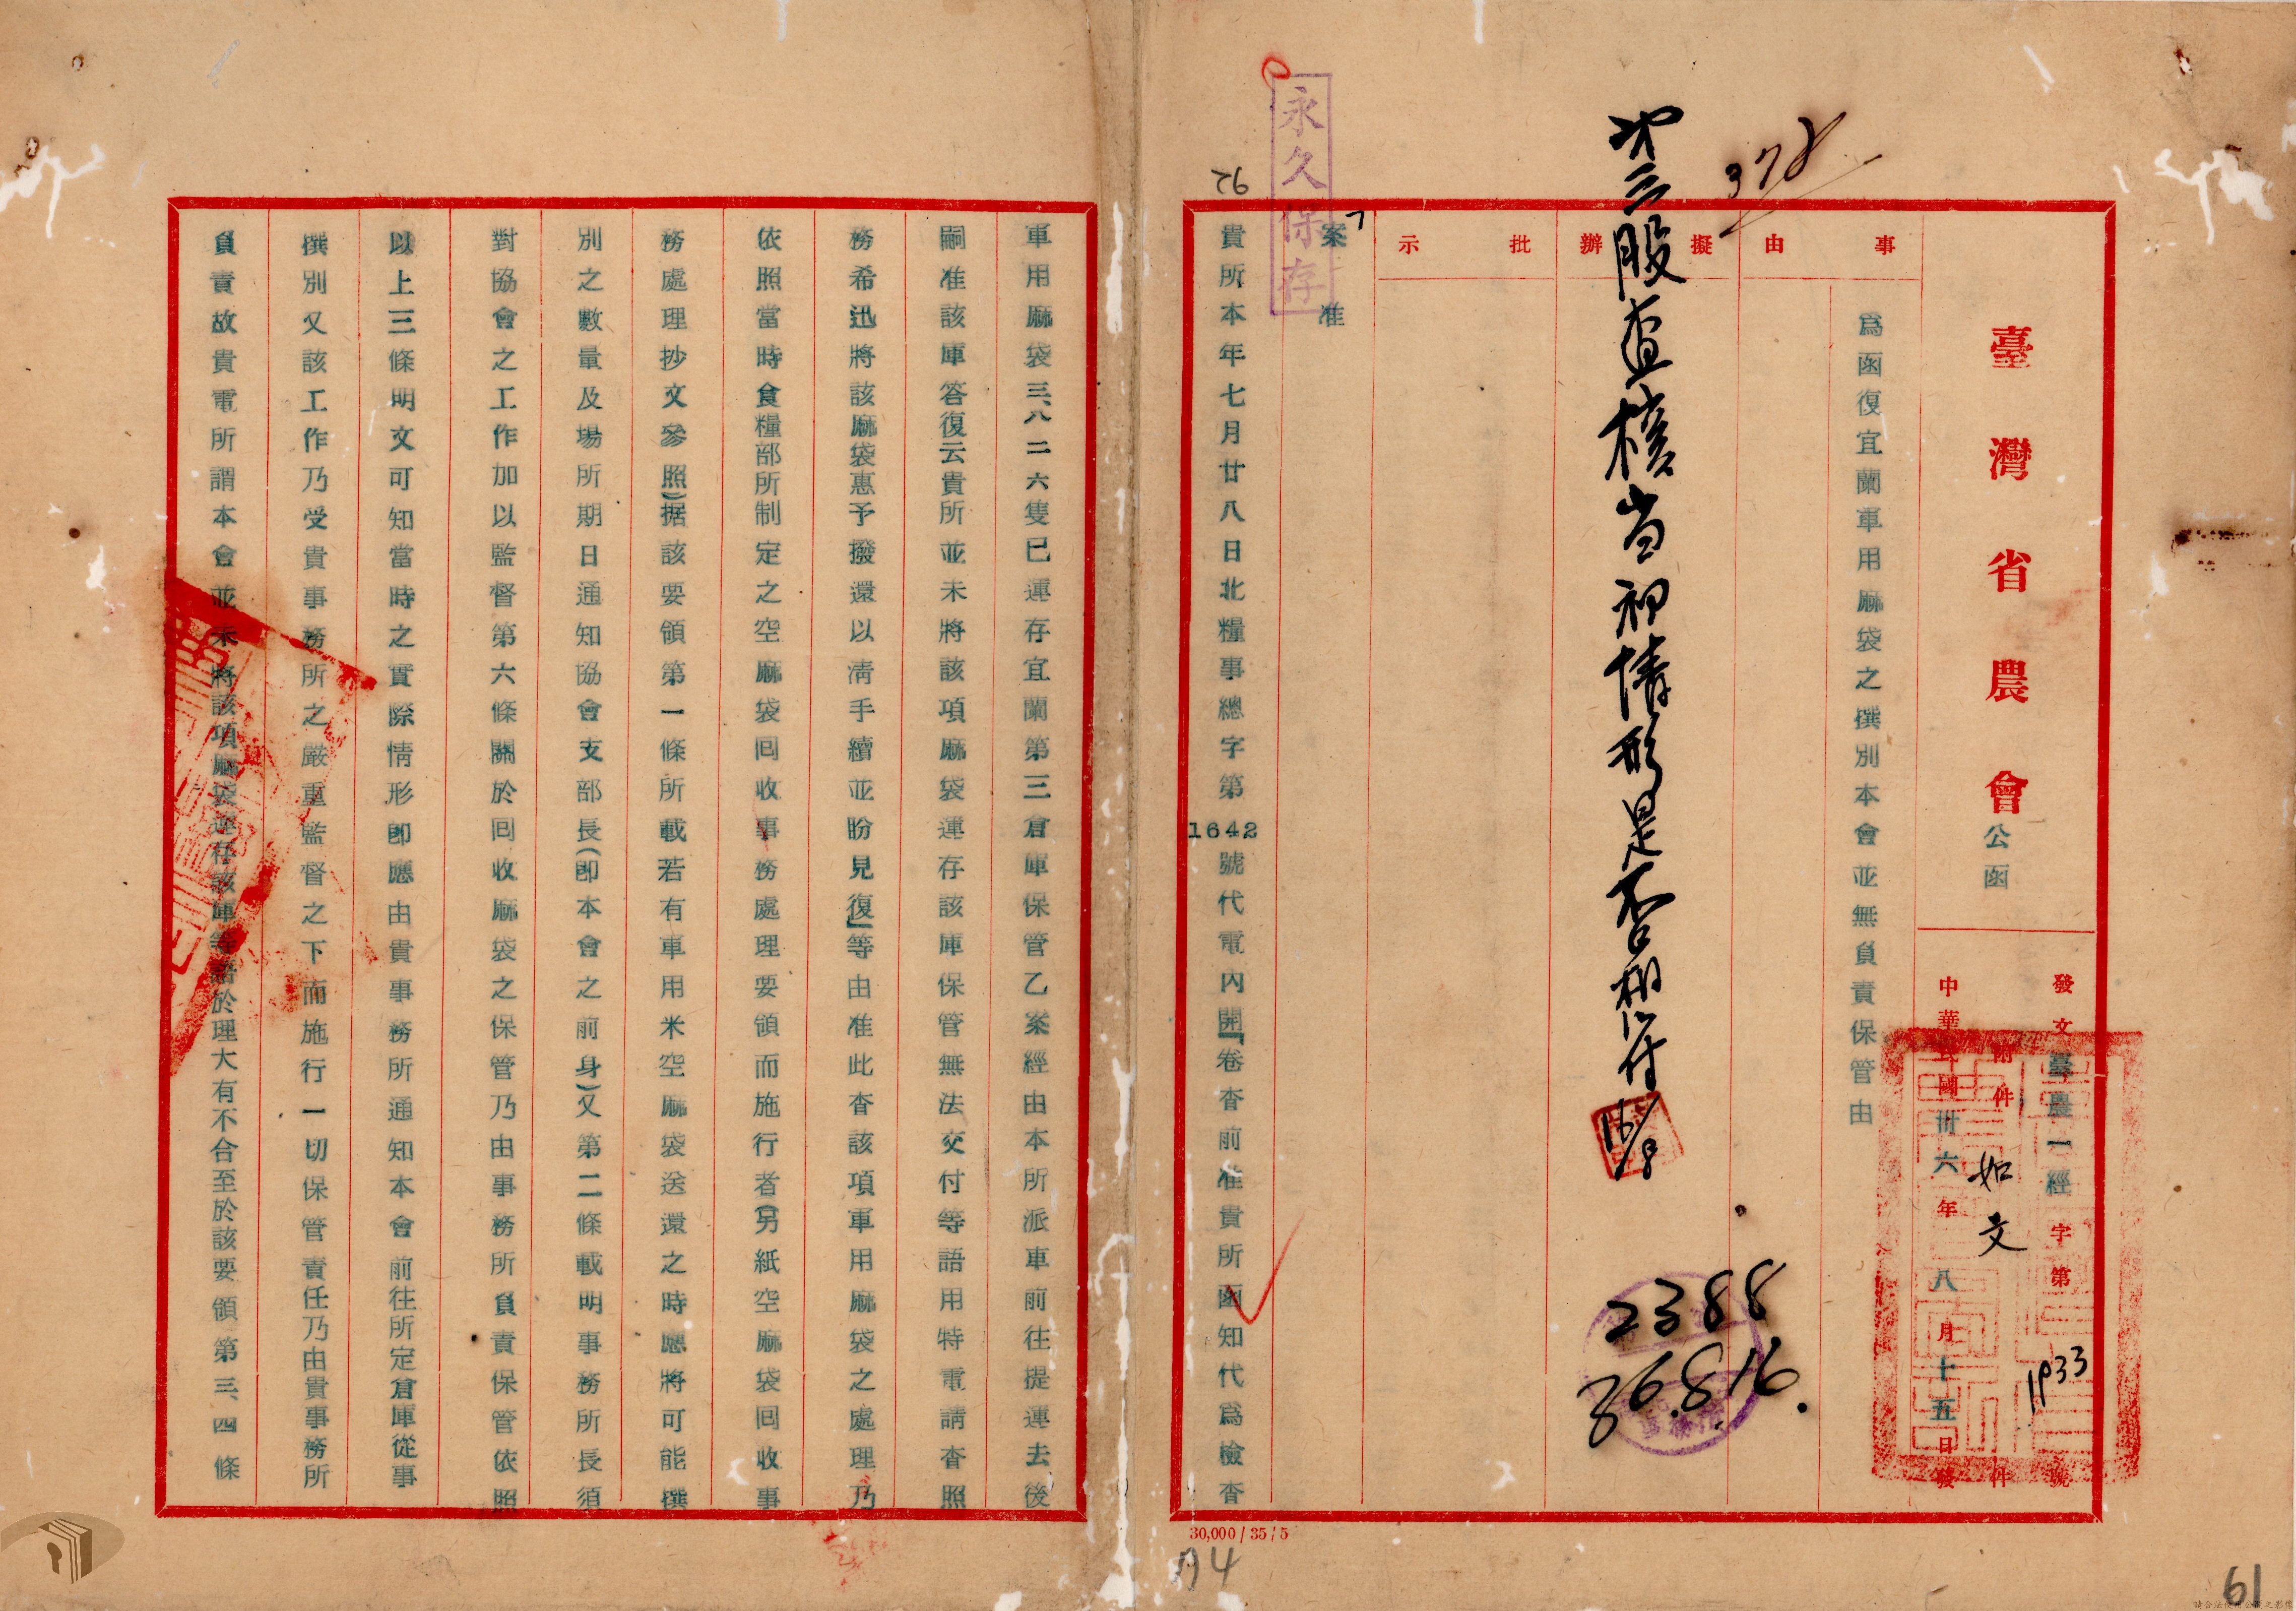 永久保存
378
76
臺灣省農會公函
發文臺農一經字第1933號
附件如文件
中華民國卅六年八月十五日發
事由
為函復宜蘭軍用麻袋之撰別本會並無負責保管由
擬辦
批示
第三股查核当初情形是否相符
16/8
2388
36.8.16.
案准
貴所本年七月廿八日北糧事總字第1642號代電內開「卷查前准貴所函知代為檢查
軍用麻袋三、八二六隻已運存宜蘭第三倉庫保管乙案經由本所派車前往提運去後
嗣准該庫答復云貴所並未將該項麻袋運存該庫保管無法交付等語用特電請查照
務希迅將該麻袋惠予撥還以清手續並盼見復」等由准此查該項軍用麻袋之處理乃
依照當時食糧部所制定之空麻袋回收事務處理要領而施行者(另紙空麻袋回收事
務處理抄文參照)据該要領第一條所載若有軍用米空麻袋送還之時應將可能撰
別之數量及場所期日通知協會支部長(即本會之前身)又第二條載明事務所長須
對協會之工作加以監督第六條關於回收麻袋之保管乃由事務所負責保管依照
以上三條明文可知當時之實際情形即應由貴事務所通知本會前往所定倉庫從事
撰別又該工作乃受貴事務所之嚴重監督之下而施行一切保管責任乃由貴事務所
負責故貴電所謂本會並未將該項麻袋運存該庫等語於理大有不合至於該要領第三、四條
30,000 / 35 / 5
61